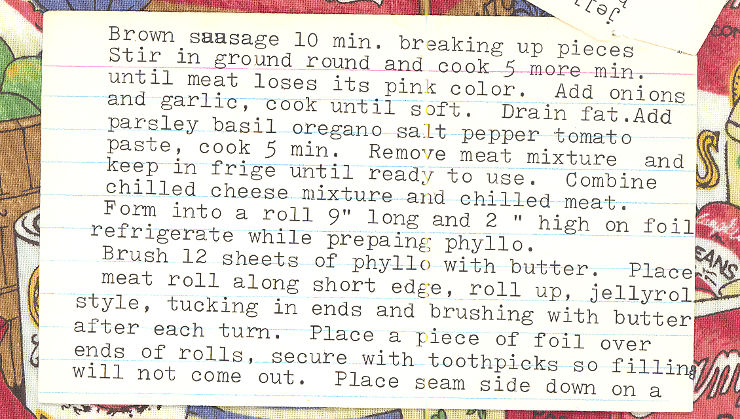 Jell
Brown saasage 10 min. breaking up pieces
Stir in ground round and cook 5 more min.
until meat loses its pink color. Add onions
and garlic, cook until soft. Drain fat.Add
parsley basil oregano salt pepper tomato
paste, cook 5 min. Remove meat mixture and
keep in frige until ready to use. Combine
chilled cheese mixture and chilled meat.
Form into a roll 9" long and 2 " high on foil
refrigerate while prepaing phyllo.
Brush 12 sheets of phyllo with butter. Place
meat roll along short edge, roll up, jellyrol
style, tucking in ends and brushing with butter
after each turn. Place a piece of foil over
ends of rolls, secure with toothpicks so filling
will not come out. Place seam side down on a
EANS